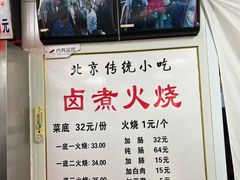 元
内有监控
北京传统小吃
卤煮火烧
菜底 32元/份 火烧 1元/个
一底一火烧:33.00 加肠 32元
纯肠 64元
一底二火烧:34.00 加肺 15元
加白肉 15元